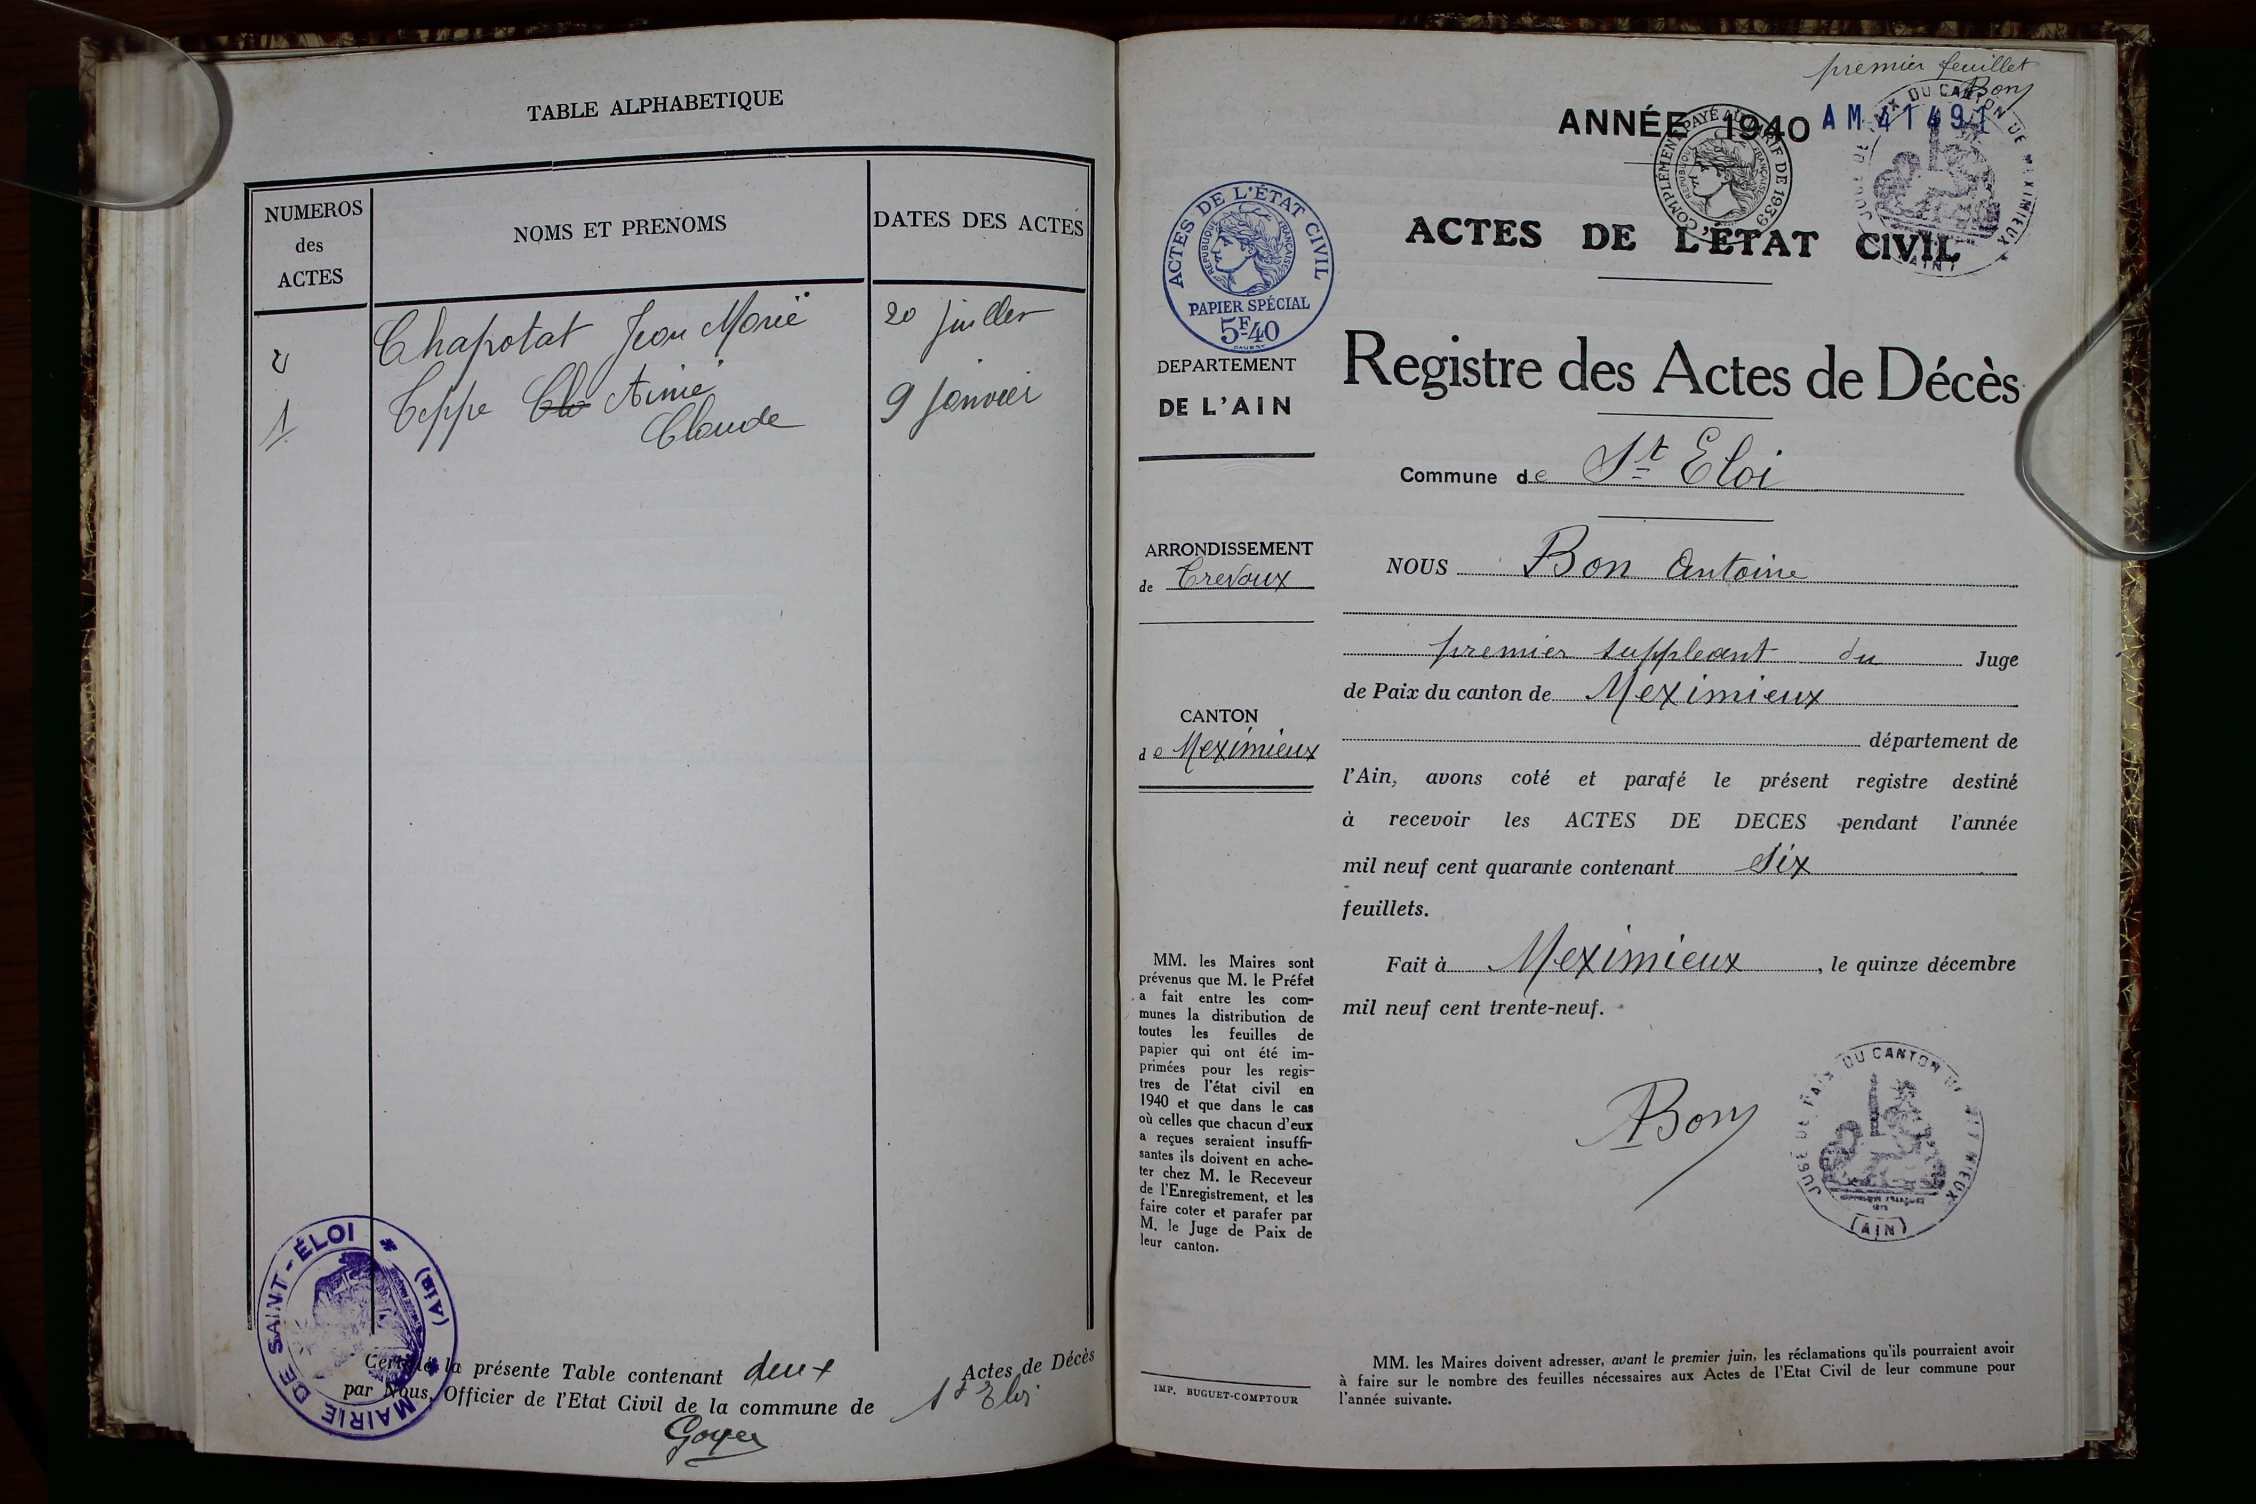 TABLE ALPHABETIQUE
NUMEROS
des
ACTES
NOMS ET PRENOMS
DATES DES ACTES
2 Chapotat Jean Marie 20 juillet
1 Teppe Cla Aimé 9 janvier
Claude
Certifié la présente Table contenant deux Actes de Décès
par Nous, Officier de l'Etat Civil de la commune de St Eloi
Goyer
MAIRIE DE SAINT-ÉLOI * (Ain) *
premier feuillet
Bon
ANNÉE 1940
AM 41491
COMPLÉMENT PAYÉ AU TARIF DE 1939
RÉPUBLIQUE FRANÇAISE
JUGE DE PAIX DU CANTON DE MEXIMIEUX
(AIN)
ACTES DE L'ÉTAT CIVIL
RÉPUBLIQUE FRANÇAISE
PAPIER SPÉCIAL
5F40
ACTES DE L'ÉTAT CIVIL
DEPARTEMENT
DE L'AIN
Registre des Actes de Décès
Commune de St Eloi
ARRONDISSEMENT
de Trevoux
CANTON
de Meximieux
NOUS Bon Antoine
premier suppleant du Juge
de Paix du canton de Meximieux
département de
l'Ain, avons coté et parafé le présent registre destiné
à recevoir les ACTES DE DECES pendant l'année
mil neuf cent quarante contenant Six
feuillets.
Fait à Meximieux, le quinze décembre
mil neuf cent trente-neuf.
Bon
JUGE DE PAIX DU CANTON DE MEXIMIEUX
(AIN)
MM. les Maires sont
prévenus que M. le Préfet
a fait entre les com-
munes la distribution de
toutes les feuilles de
papier qui ont été im-
primées pour les regis-
tres de l'état civil en
1940 et que dans le cas
où celles que chacun d'eux
a reçues seraient insuffi-
santes ils doivent en ache-
ter chez M. le Receveur
de l'Enregistrement, et les
faire coter et parafer par
M. le Juge de Paix de
leur canton.
IMP. BUGUET-COMPTOUR
MM. les Maires doivent adresser, avant le premier juin, les réclamations qu'ils pourraient avoir
à faire sur le nombre des feuilles nécessaires aux Actes de l'Etat Civil de leur commune pour
l'année suivante.